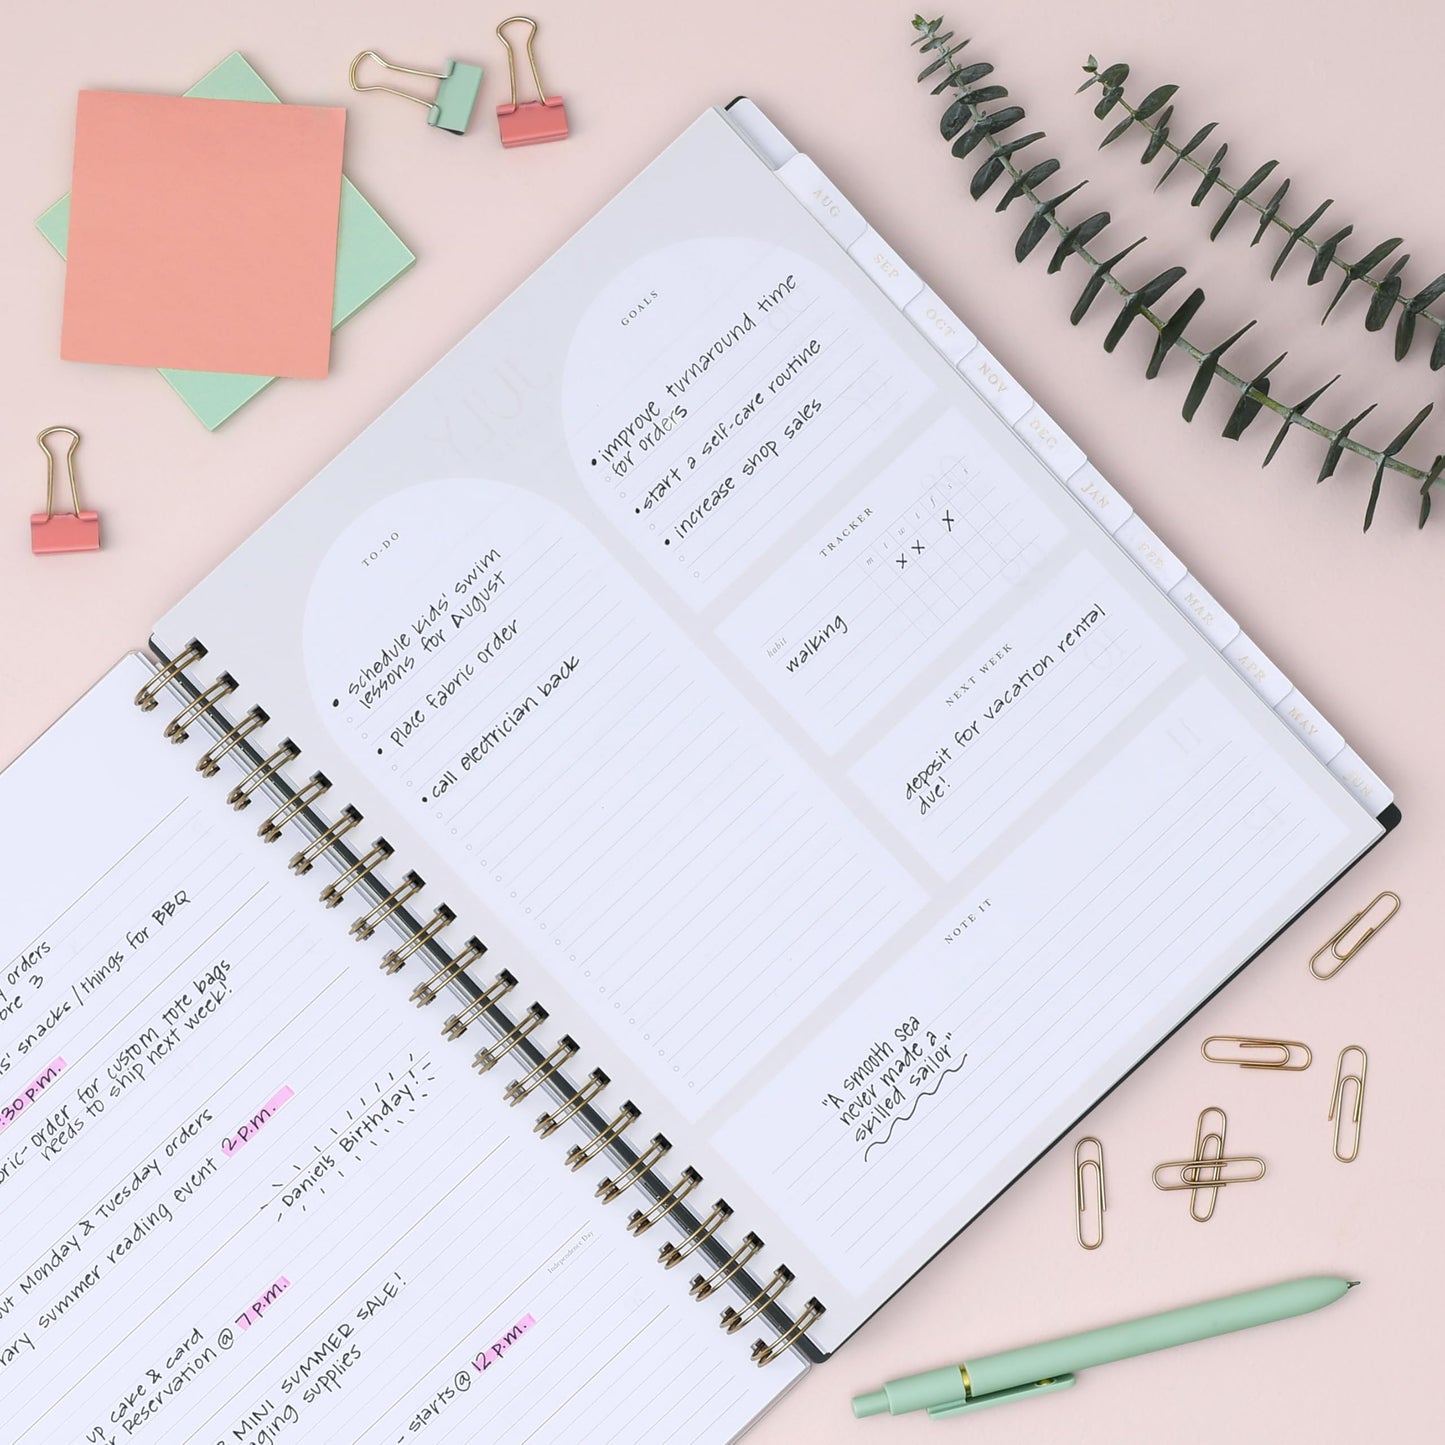 AUG
SEP
OCT
NOV
DEC
JAN
FEB
MAR
APR
MAY
JUN
JULY
GOALS
• improve turnaround time
for orders
• start a self-care routine
• increase shop sales
TO-DO
• schedule kids' swim
lessons for August
• place fabric order
• call electrician back
TRACKER
m t w t f s s
x x x
habit
walking
NEXT WEEK
deposit for vacation rental
due!
NOTE IT
"A smooth sea
never made a
skilled sailor"
orders
3
snacks/things for BBQ
:30 p.m.
order for custom tote bags
needs to ship next week!
Monday & Tuesday orders
summer reading event 2 p.m.
- Daniel's Birthday! -
up cake & card
reservation @ 7 p.m.
Independence Day
MINI SUMMER SALE!
supplies
- starts @ 12 p.m.